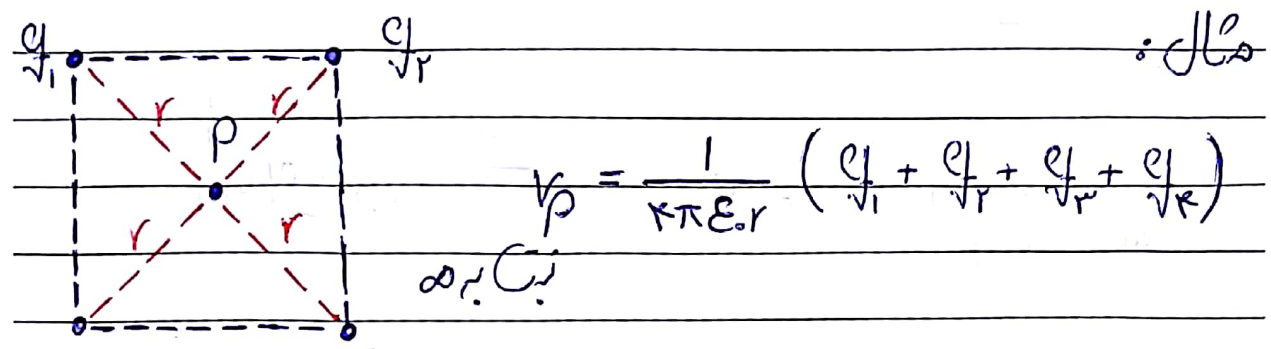 مثال :
q₁ q₂
r r
P
V_P = ۱ / ۴πε₀r (q₁ + q₂ + q₃ + q₄)
r r
نسبت به ∞